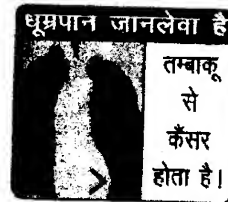 धूम्रपान जानलेवा है
तम्बाकू
से
कैंसर
होता है।